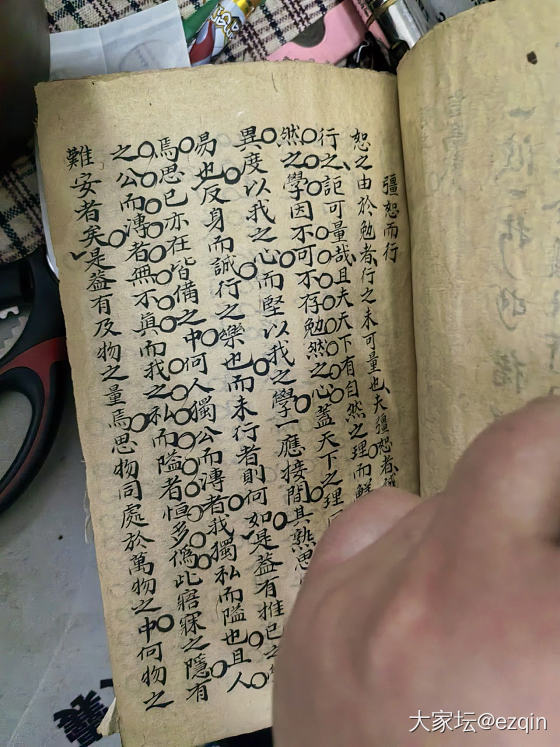 彊恕而行
恕之由於勉者行之未可量也夫彊恕者
行之詎可量哉且夫天下有自然之理而鮮
然之學因不可不存勉然之心蓋天下之理
異度以我之心而堅以我之學一應接間其熟思
易也反身而誠行之樂也而未行者則何如是益有推已之
焉思已亦在皆備之中何人獨公而溥者我獨私而隘也且人
之公而溥者無不真而我之私而隘者恒多偽此寤寐之隱有
難安者矣是益有及物之量焉思物同處於萬物之中何物之
大家坛@ezqin